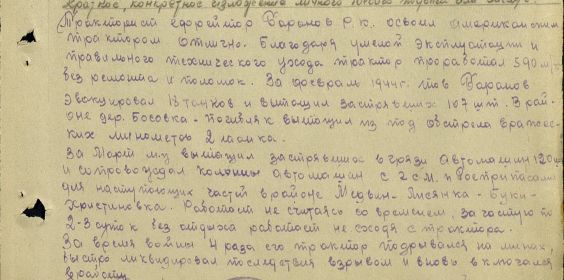 Краткое, конкретное изложение личного боевого подвига или заслуг.
Тракторист ефрейтор Баранов Р.К. освоил американский
трактором отлично. Благодаря умелой эксплуатации и
правильного технического ухода трактор проработал 590 м/ч
без ремонта и поломок. За февраль 1944г. тов Баранов
эвакуировал 13 танков и вытащил застрявших 107 шт. В рай-
оне дер. Босовка - Погибляк вытащил из под обстрела вражес-
ких минометов 2 танка.
За Март м-ц вытащил застрявшие в грязи автомашин 120 шт
и сопровождал колонны автомашин с ГСМ и боеприпасами
для наступающих частей в районе Медвин - Лисянка - Буки -
Христиновка. Работает не считаясь со временем, зачастую по
2-3 суток без отдыха работает не сходя с трактора.
За время войны 4 раза его трактор подрывался на минах,
быстро ликвидировал последствия взрывом и вновь включался
в работу.